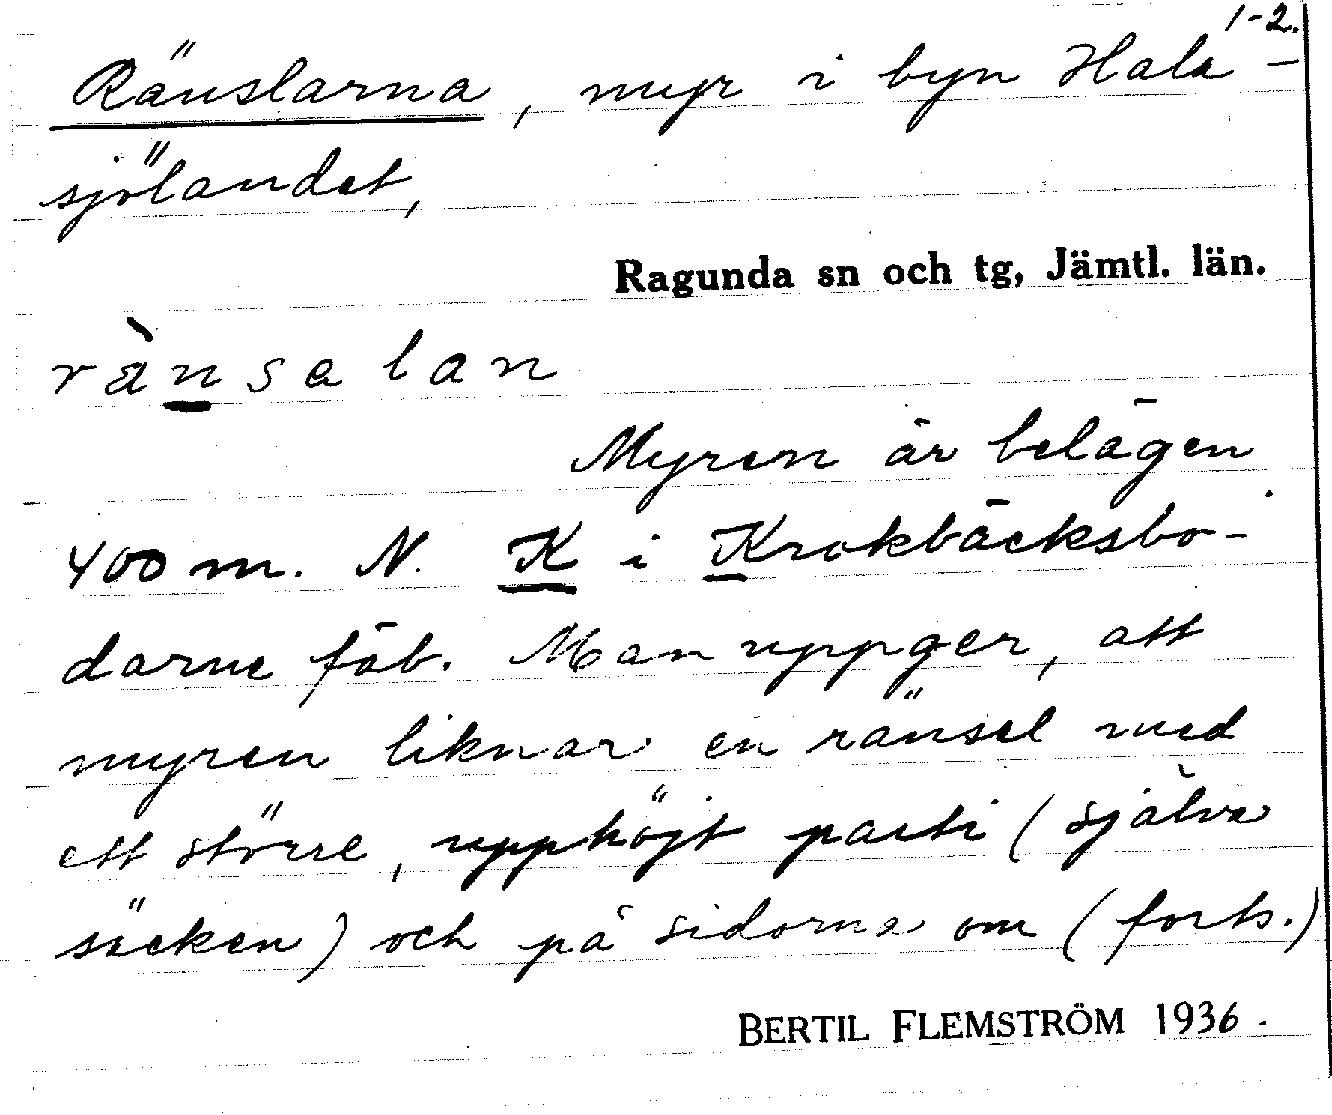 1-2.
Ränslarna, myr i byn Hala-
sjölandet,
Ragunda sn och tg, Jämtl. län.
rànsalan
Myren är belägen
400 m. N. K i Krokbäcksbo-
darne fäb. Man uppger, att
myren liknar en ränsel med
ett större, upphöjt parti (själva
säcken) och på sidorna om (forts.)
BERTIL FLEMSTRÖM 1936.